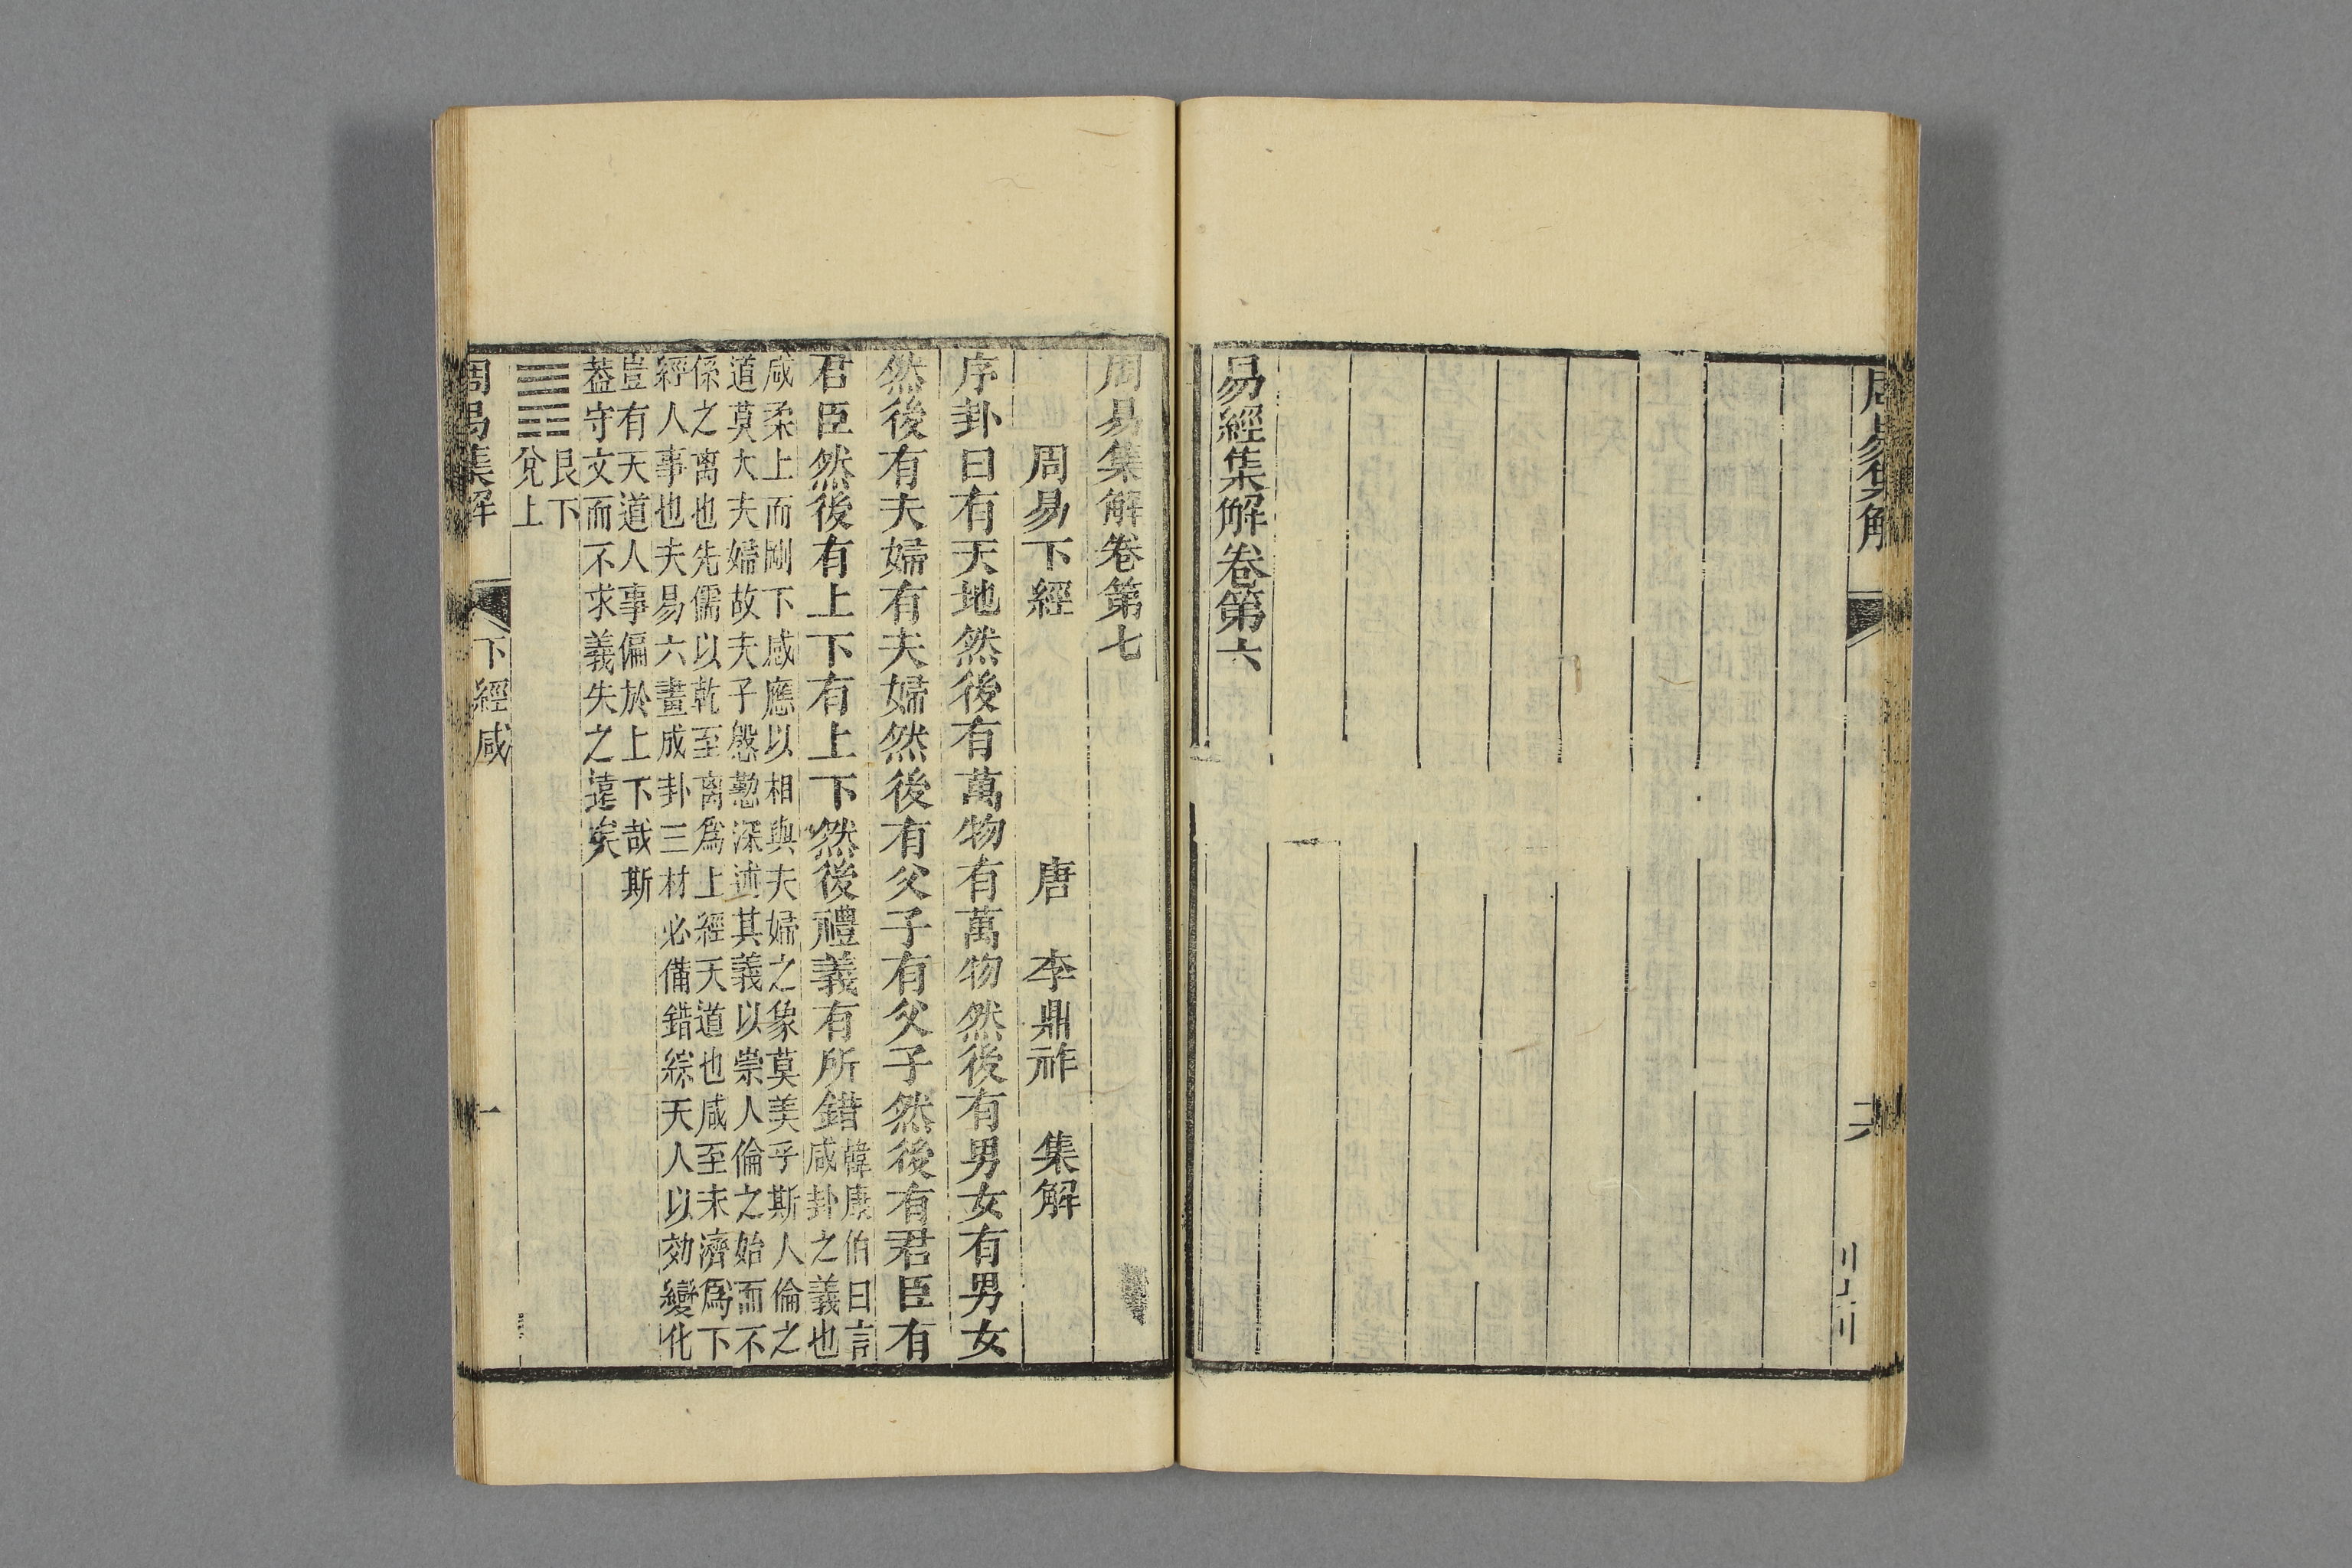 周易集解
六
易經集解卷第六
周易集解卷第七
周易下經 唐 李鼎祚 集解
序卦曰有天地然後有萬物有萬物然後有男女有男女
然後有夫婦有夫婦然後有父子有父子然後有君臣有
君臣然後有上下有上下然後禮義有所錯
韓康伯曰言
咸卦之義也
咸柔上而剛下感應以相與夫婦之象莫美乎斯人倫之
道莫大夫婦故夫子慇懃深述其義以崇人倫之始而不
係之离也先儒以乾至离爲上經天道也咸至未濟爲下
經人事也夫易六畫成卦三材必備錯綜天人以効變化
豈有天道人事偏於上下哉斯
葢守文而不求義失之遠矣
䷞
艮下
兌上
周易集解
下經咸
一